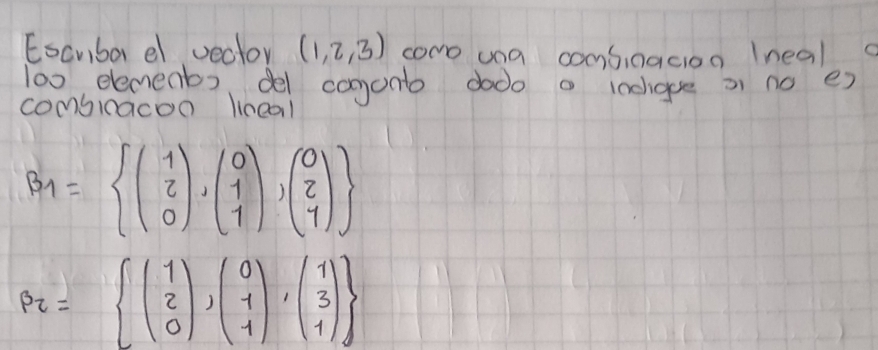 Escriba el vector (1,2,3) como una combinacion lneal
los elementos del conjunto dado o indique si no es
combinacon lineal
β1 = {(1 2 0), (0 1 1), (0 2 1)}
β2 = {(1 2 0), (0 1 1), (1 3 1)}